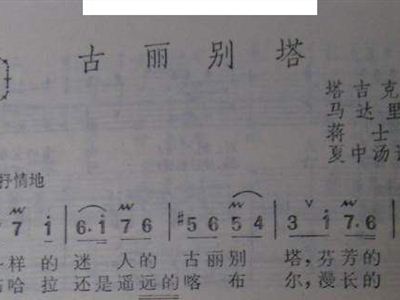 古丽别塔
塔吉克
马达里
蒋士
夏中汤
抒情地
7 i | 6·i 7 6 | #5 6 5 4 | 3 i 7·6 |
样的 迷 人的 古丽别 塔,芬芳的
哈拉 还是遥远的喀 布 尔,漫长的